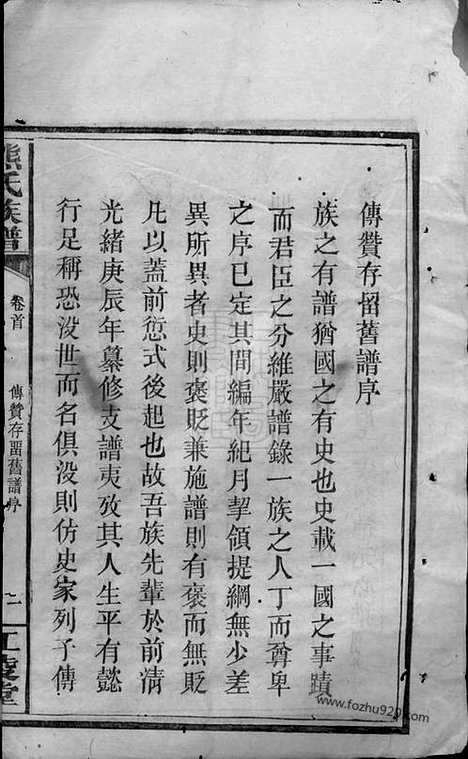 傳贊存畱舊譜序
族之有譜猶國之有史也史載一國之事蹟
而君臣之分維嚴譜錄一族之人丁而尊卑
之序已定其間編年紀月挈領提綱無少差
異所異者史則褒貶兼施譜則有褒而無貶
凡以蓋前愆式後起也故吾族先輩於前清
光緒庚辰年纂修支譜夷攷其人生平有懿
行足稱恐没世而名俱没則仿史家列子傳
熊氏族譜
卷首
傳贊存畱舊譜序
江陵堂
www.fozhu920.com